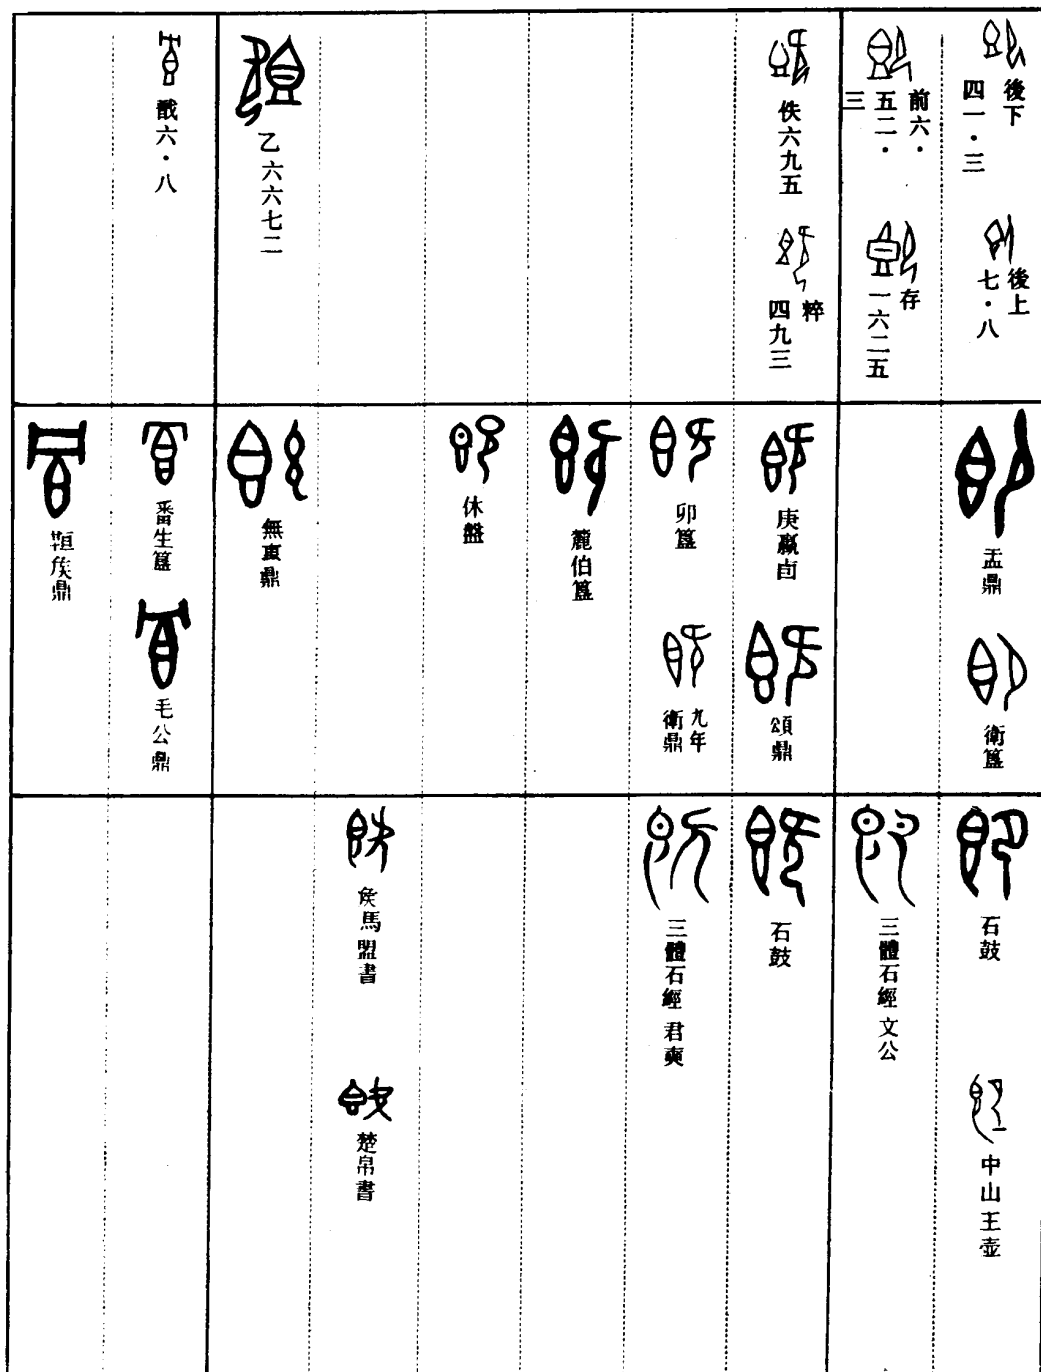 後下
四一・三
後上
七・八
前六・
五二・
三
存
一六二五
佚六九五
粹
四九三
乙六六七二
戩六・八
盂鼎
衛簋
庚嬴卣
頌鼎
卯簋
九年
衛鼎
簏伯簋
休盤
無叀鼎
番生簋
毛公鼎
石鼓
中山王壺
三體石經 文公
石鼓
三體石經 君奭
侯馬盟書
楚帛書